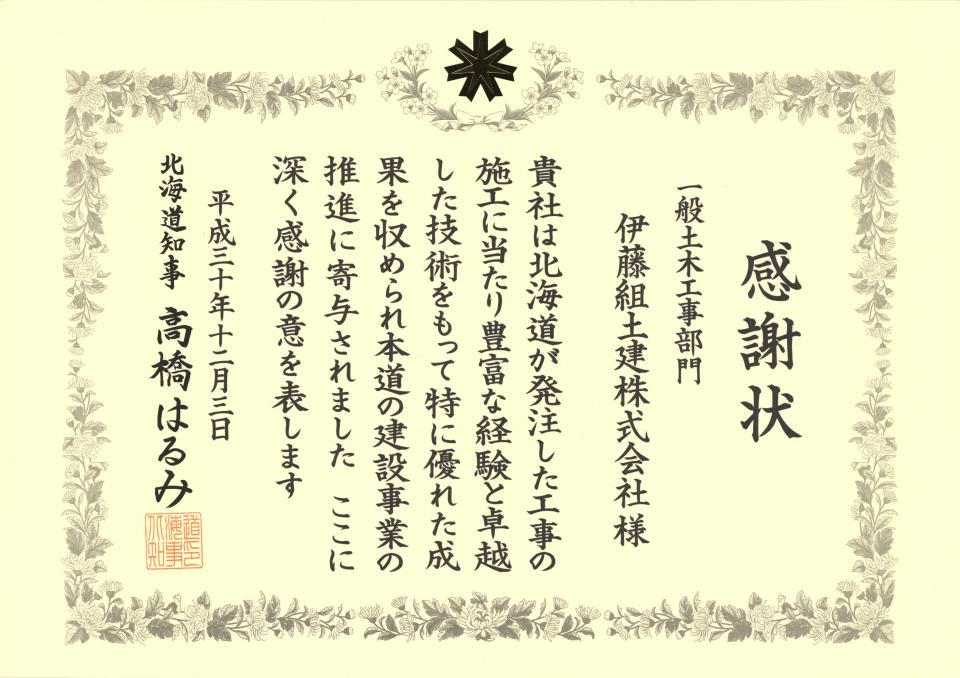 感謝状
一般土木工事部門
伊藤組土建株式会社様
貴社は北海道が発注した工事の
施工に当たり豊富な経験と卓越
した技術をもって特に優れた成
果を収められ本道の建設事業の
推進に寄与されました ここに
深く感謝の意を表します
平成三十年十二月三日
北海道知事 高橋はるみ